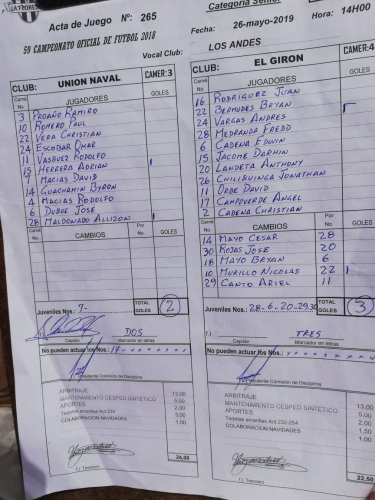 Acta de Juego Nº: 265
Categoría Senior
59 CAMPEONATO OFICIAL DE FUTBOL 2018
Fecha: 26-mayo-2019 Hora: 14H00
Vocal Club: LOS ANDES
CLUB: UNION NAVAL CAMER: 3
Camé No. JUGADORES GOLES
3 PROAÑO RAMIRO
10 ROMERO PAUL
22 VERA CHRISTIAN
24 ESCOBAR OMAR
21 VASQUEZ RODOLFO
15 HERRERA ADRIAN I
MACIAS DAVID
14 GUACHAMIN BYRON
4 MACIAS RODOLFO
6 DUQUE JOSE
28 MALDONADO ALLISON I
Camé No. CAMBIOS Por No. GOLES
Juveniles Nos.: 7- TOTAL GOLES 2
DOS
Capitán Marcador en letras
No pueden actuar los Nos.: 17
Presidente Comisión de Disciplina
ARBITRAJE 13,00
MANTENIMIENTO CESPED SINTETICO 5,00
APORTES 2,00
Tarjetas amarillas Act 252-254 3,00
COLABORACION NAVIDADES 1,00
24,00
f.) Tesorero
CLUB: EL GIRON CAMER: 4
Camé No. JUGADORES GOLES
16 RODRIGUEZ JUAN
22 BERMUDES BRYAN I
24 VARGAS ANDRES
28 MEDRANDA FREDD
6 CADENA EDWIN
15 JACOME DARWIN
20 LANDETA ANTHONY
26 CHILIQUINGA JONATHAN
11 ORBE DAVID
17 CAMPOVERDE ANGEL
2 CADENA CHRISTIAN
Camé No. CAMBIOS Por No. GOLES
14 MAYO CESAR 28
30 ROJAS JOSE 20
18 MAYO BRYAN 6
10 MURILLO NICOLAS 22 I
29 CANTO ARIEL 11
Juveniles Nos.: 28-6-20-29-30 TOTAL GOLES 3
f.) TRES
Capitán Marcador en letras
No pueden actuar los Nos.:
Presidente Comisión de Disciplina
ARBITRAJE 13,00
MANTENIMIENTO CESPED SINTETICO 5,00
APORTES 2,00
Tarjetas amarillas Act 252-254 1,50
COLABORACION NAVIDADES 1,00
22,50
f.) Tesorero